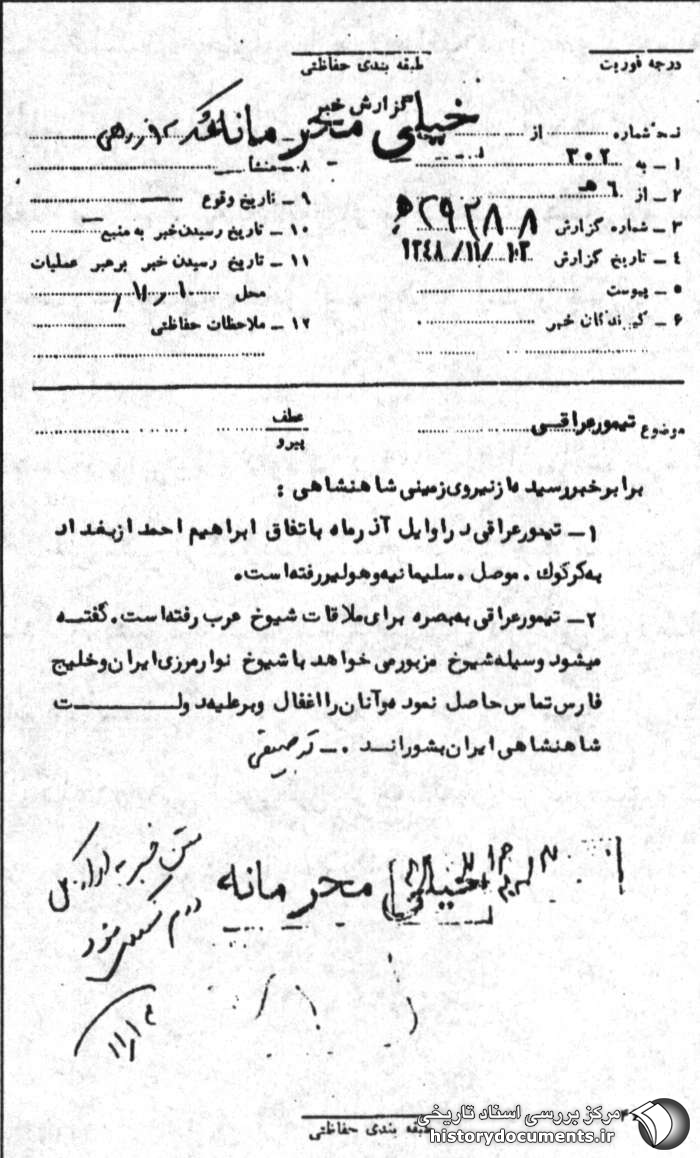 درجه فوریت
طبقه بندی حفاظتی
گزارش خبر
خیلی محرمانه
شماره از
۱ ـ به ۳۰۲
۲ ـ از ۶ هـ
۳ ـ شماره گزارش
۴ ـ تاریخ گزارش
۵ ـ پیوست
۶ ـ گیرندگان خبر
۸ ـ منشأ
۹ ـ تاریخ وقوع
۱۰ ـ تاریخ رسیدن خبر به منبع
۱۱ ـ تاریخ رسیدن خبر برهبر عملیات
محل
۱۲ ـ ملاحظات حفاظتی
موضوع تیمور عراقی
عطف
پیرو
برابر خبر رسیده از نیروی زمینی شاهنشاهی :
۱ـ تیمور عراقی در اوایل آذرماه باتفاق ابراهیم احمد از بغداد
به کرکوک . موصل . سلیمانیه و هولیر رفته است.
۲ـ تیمور عراقی به بصره برای ملاقات شیوخ عرب رفته است. گفته
میشود وسیله شیوخ مزبور می خواهد با شیوخ نوار مرزی ایران و خلیج
فارس تماس حاصل نموده و آنان را اغفال و بر علیه دولت
شاهنشاهی ایران بشوراند .ـ
خیلی محرمانه
متن خبر به اداره کل
سوم منعکس شود
طبقه بندی حفاظتی
مرکز بررسی اسناد تاریخی
historydocuments.ir